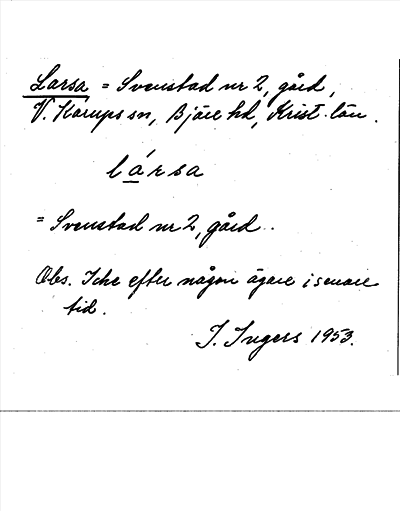 Larsa = Svenstad nr 2, gård,
V. Karups sn, Bjäre hd, Krist. län.
lársa
= Svenstad nr 2, gård.
Obs. Icke efter någon ägare i senare
tid.
I. Ingers 1953.